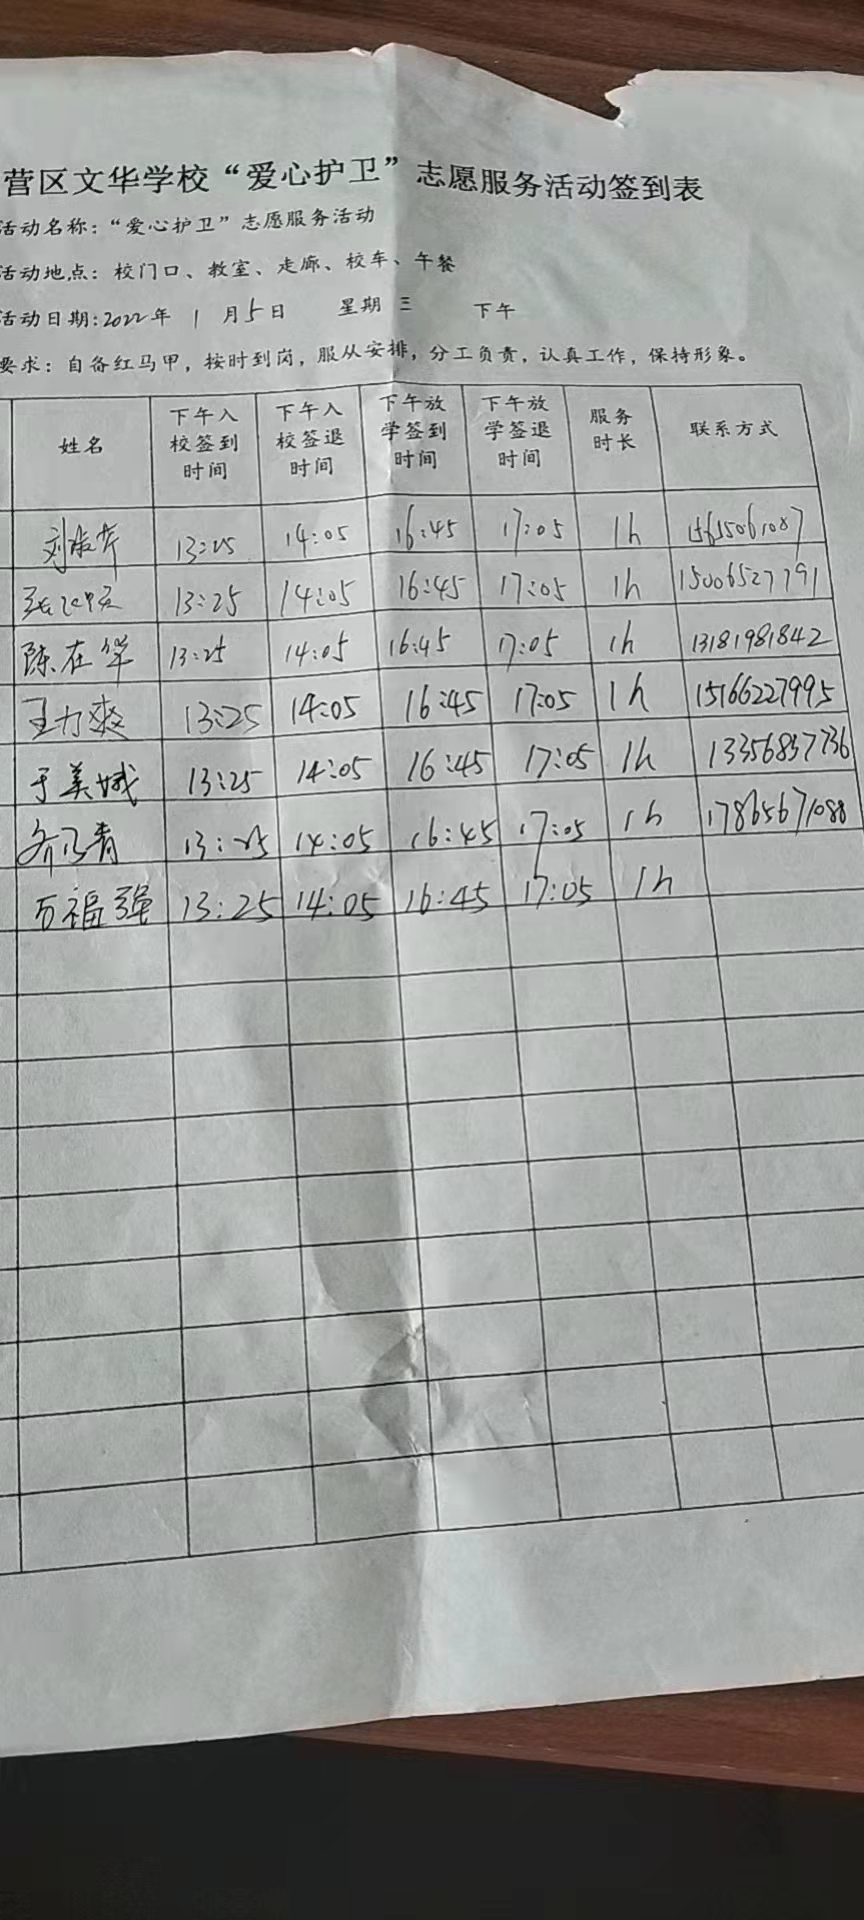 营区文华学校“爱心护卫”志愿服务活动签到表
活动名称：“爱心护卫”志愿服务活动
活动地点：校门口、教室、走廊、校车、午餐
活动日期：2022年 1 月5日 星期 三 下午
要求：自备红马甲，按时到岗，服从安排，分工负责，认真工作，保持形象。
姓名 下午入校签到时间 下午入校签退时间 下午放学签到时间 下午放学签退时间 服务时长 联系方式
13:25 14:05 16:45 17:05 1h 15615061087
13:25 14:05 16:45 17:05 1h 15006527791
陈在华 13:25 14:05 16:45 17:05 1h 13181981842
王力爽 13:25 14:05 16:45 17:05 1h 15166227995
于美娥 13:25 14:05 16:45 17:05 1h 13356837736
齐乃青 13:25 14:05 16:45 17:05 1h 17865671088
万福强 13:25 14:05 16:45 17:05 1h